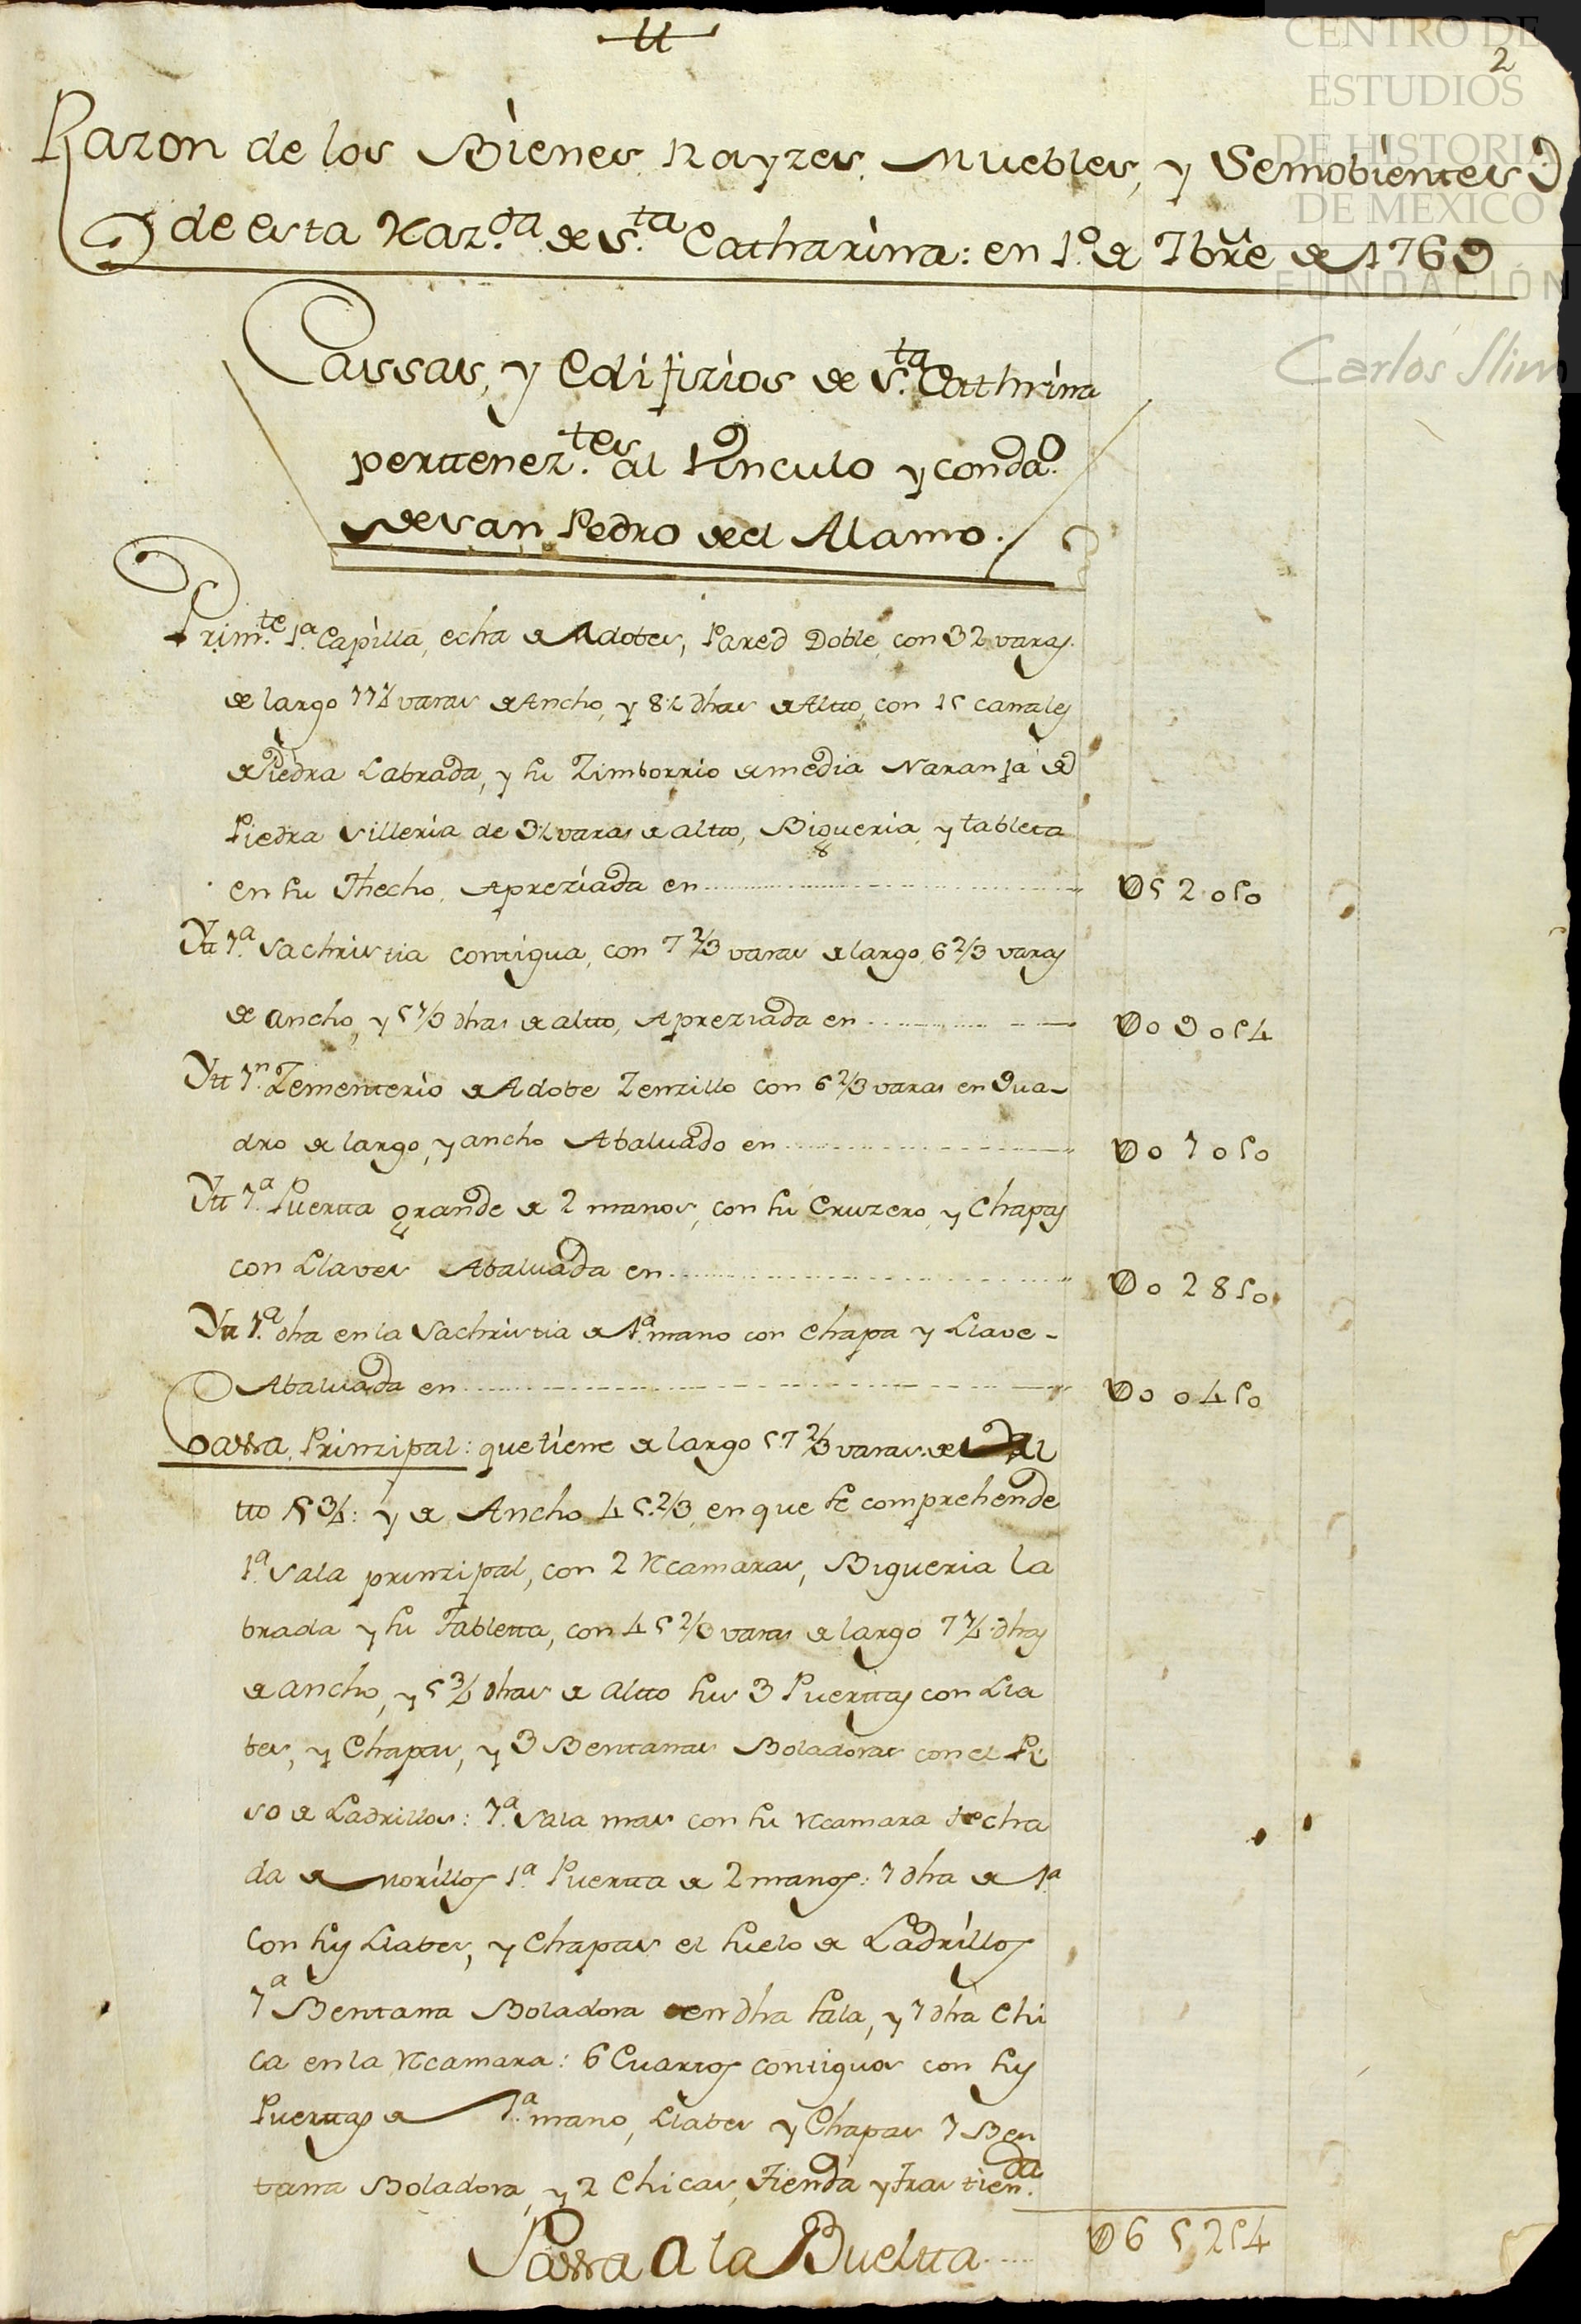 CENTRO DE
ESTUDIOS
DE HISTORIA
DE MÉXICO
FUNDACIÓN
Carlos Slim
2
Razon de los Bienes Rayzes, Muebles, y Semobientes
de esta Haz.da de S.ta Catharina: en 1.o de 7bre de 1769
Cassas, y Edifizios de S.ta Cathrina
pertenez.tes al Vinculo y conda.o
de san Pedro del Alamo.
Prim.te 1.a Capilla, echa de Adobes, Pared Doble, con 32 varas
de largo 7 1/4 varas de Ancho, y 8 1/2 dhas de Altto, con 15 canales
de Piedra Labrada, y su Zimborrio de media Naranja de
Piedra silleria de 3 1/2 varas de altto, Bigueria, y tableta
en su Thecho, Apreziada en
052050
Ytt 1.a Sachristia contigua, con 7 2/3 varas de largo, 6 2/3 varas
de ancho, y 5 1/3 dhas de altto, Apreziada en
009054
Ytt 1.n Zementerio de Adobe Zenzillo con 6 2/3 varas en Qua-
dro de largo, y ancho Abaluado en
001050
Ytt 1.a Puertta grande de 2 manos, con su Cruzero, y Chapas
con Llaves Abaluada en
002850
Ytt 1.a dha en la Sachristia de 1.a mano con chapa y Llave-
Abaluada en
000450
Cassa Prinzipal: que tiene de largo 57 2/3 varas de Al
tto 5 3/4: y de Ancho 45 2/3, en que se comprehende
1.a Sala prinzipal, con 2 Rcamaras, Bigueria la
brada y su Tabletta, con 45 2/3 varas de largo 7 1/4 dhas
de ancho, y 5 3/4 dhas de altto sus 3 Puerttas con Lla
bes, y Chapas, y 3 Bentanas Boladoras con el Pi
so de Ladrillos: 1.a Sala mas con su Rcamara techa
da de morillos 1.a Puertta de 2 manos: 1 dha de 1.a
con sus Llabes, y Chapas el suelo de Ladrillos
1.a Bentana Boladora en dha sala, y 1 dha chi
ca en la Rcamara: 6 Cuartos contiguos con sus
Puerttas de 1.a mano, Llabes y Chapas 1 Ben
tana Boladora, y 2 Chicas, Tienda y tras tien.da
Passa a la Bueltta
065254